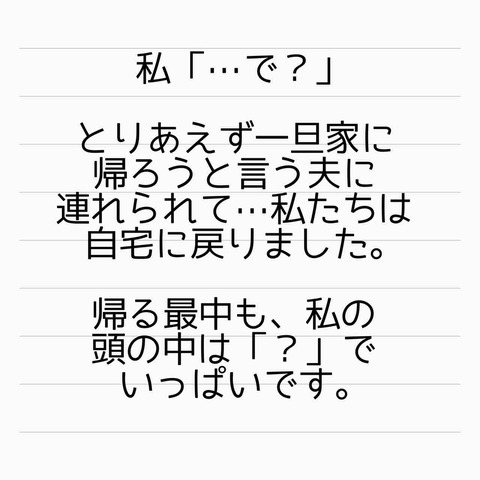 私「…で？」
とりあえず一旦家に
帰ろうと言う夫に
連れられて…私たちは
自宅に戻りました。
帰る最中も、私の
頭の中は「？」で
いっぱいです。